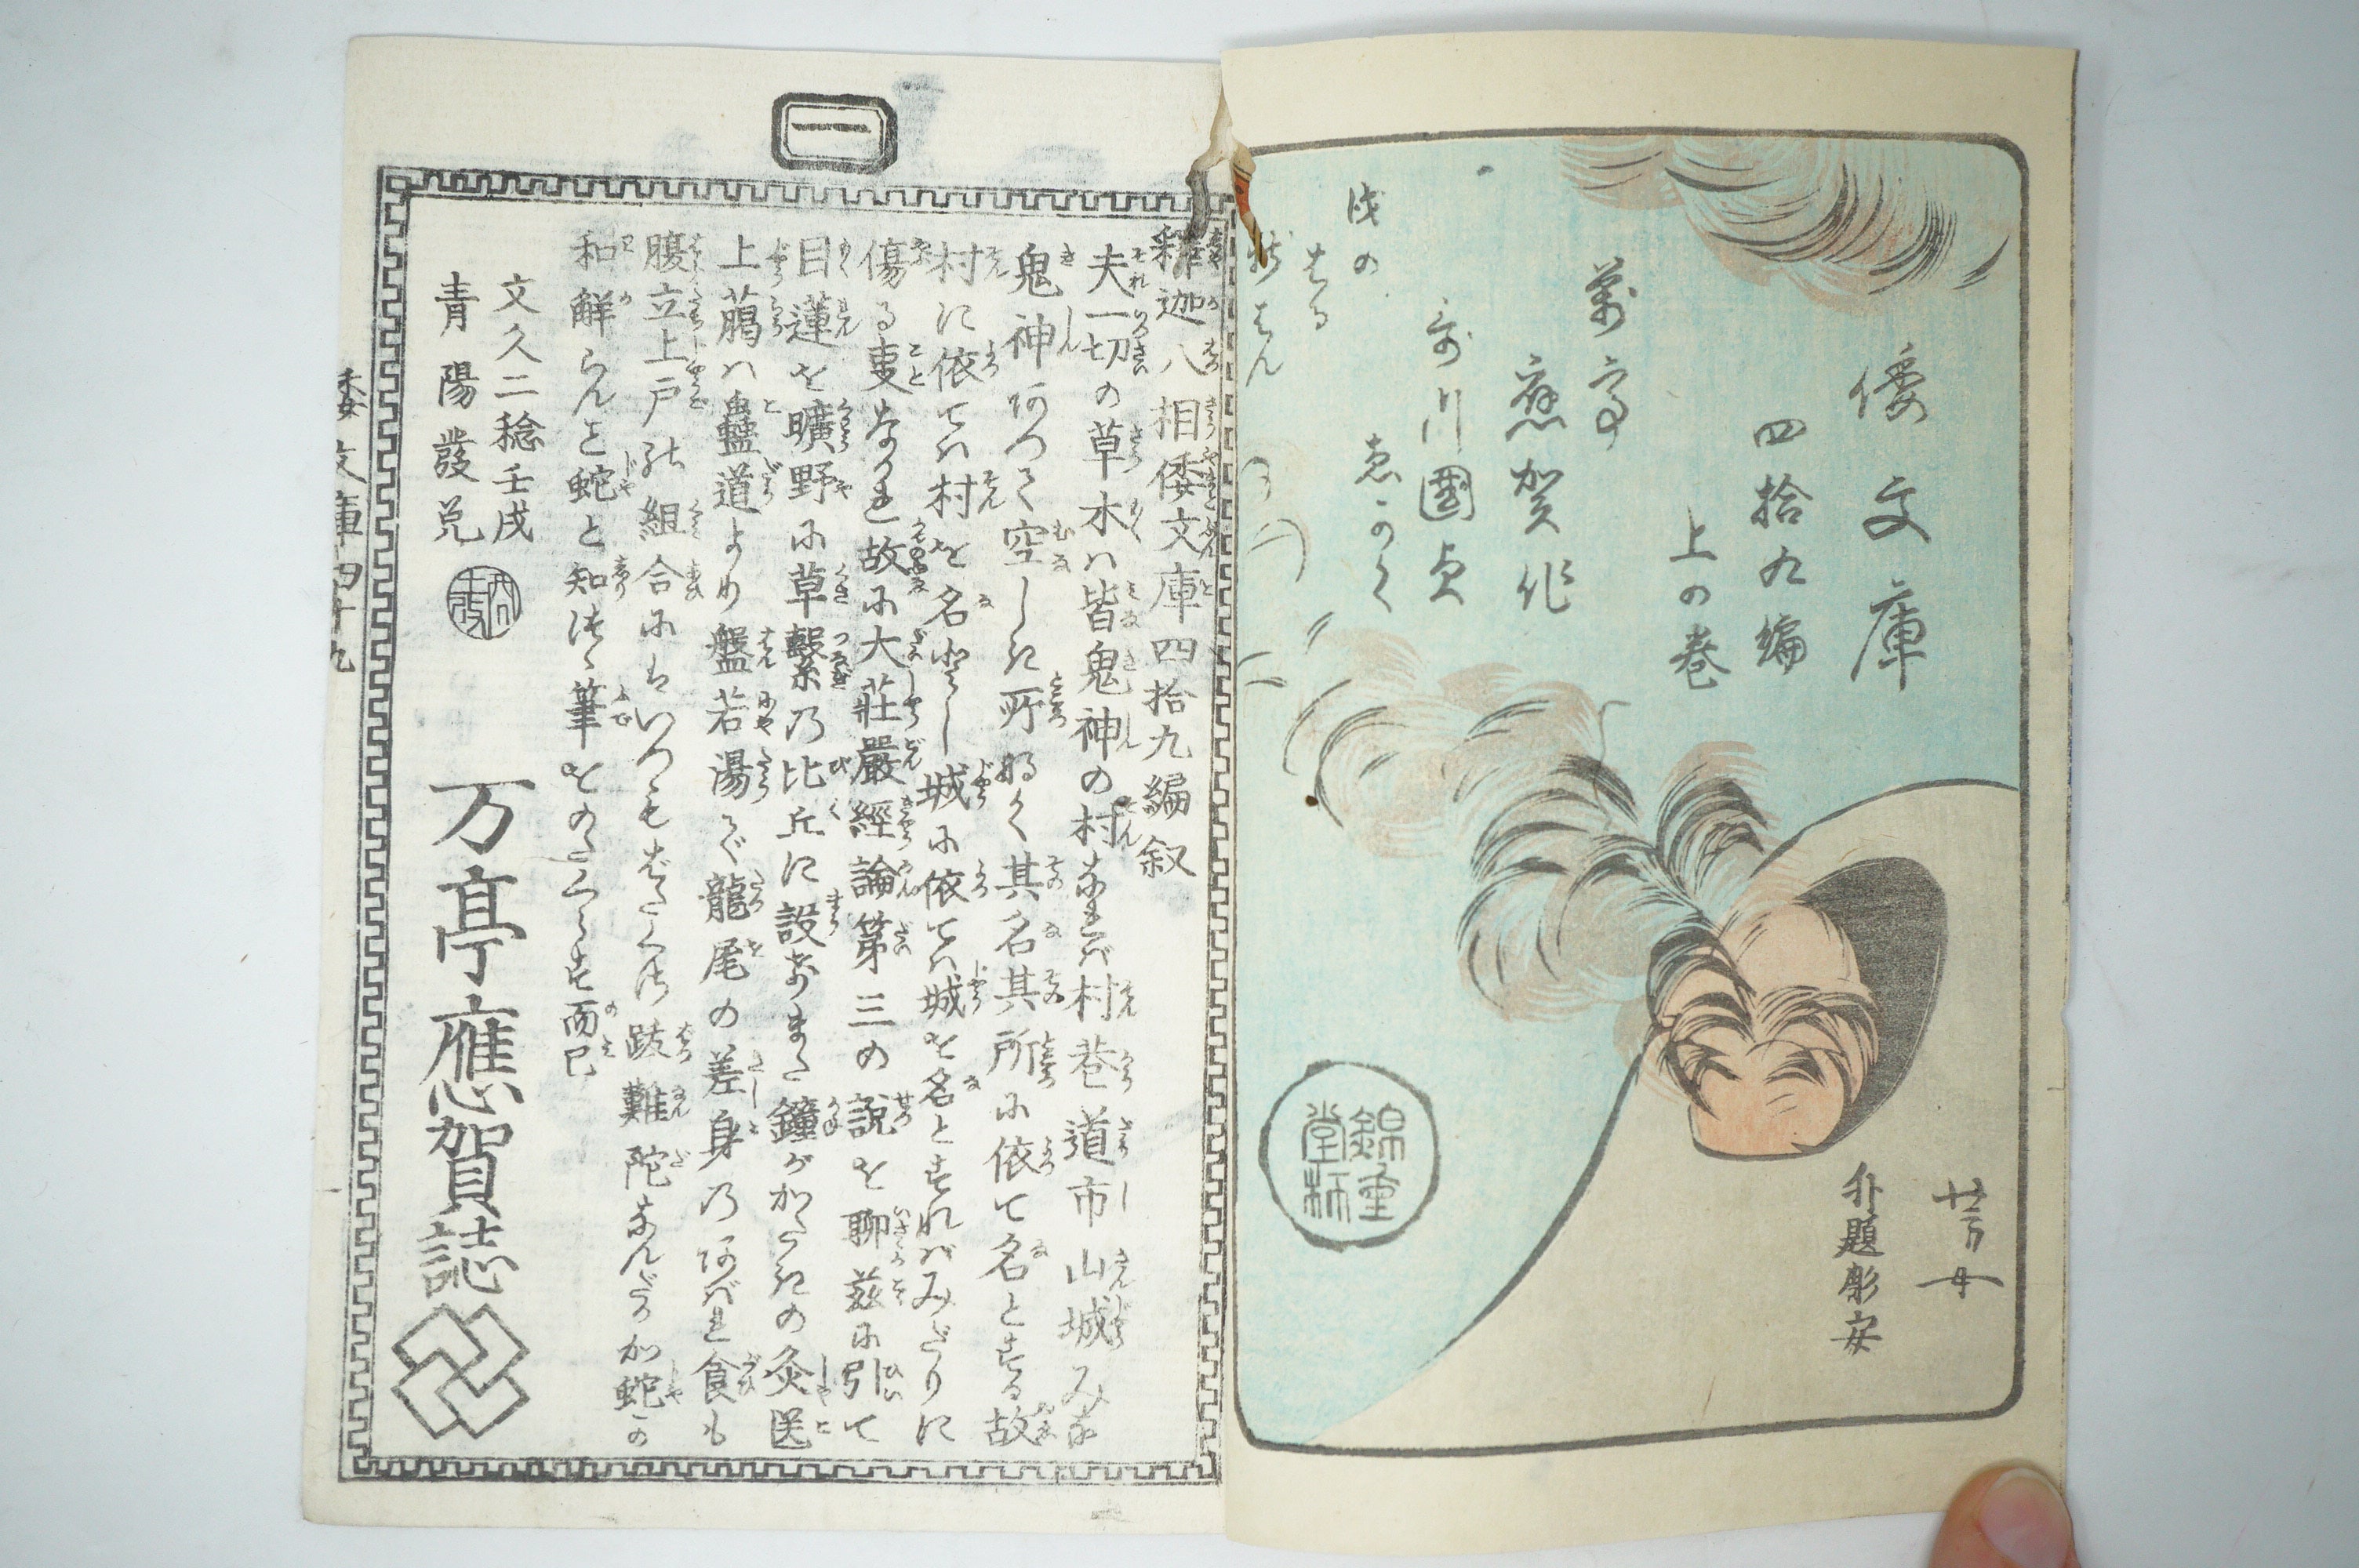 倭文庫
四拾九編
上の巻
萬亭
應賀作
哥川國貞
ゑかく
戌の
はる
錦重堂梓
外題彫安
一
釋迦八相倭文庫四拾九編叙
夫一切の草木ハ皆鬼神の村なれバ村巷道市山城みな
鬼神ありて空しき所なく其名其所に依て名とする故
村に依てハ村を名とし城に依てハ城を名とすれバみだりに
傷る事なかれ故に大莊嚴經論第三の説を聊茲に引て
目蓮を曠野に草繋乃比丘に設なまた鐘がかたきの灸送
上﨟ハ蠱道より盤若湯で龍尾の差身乃あばれ食も
腹立上戸の組合にはいつもはたく跋難陀なんだ加蛇の
和解らんと蛇と知つゝ筆をのたくらす而已
文久二稔壬戌
青陽發兌
万亭應賀誌
倭文庫四十九